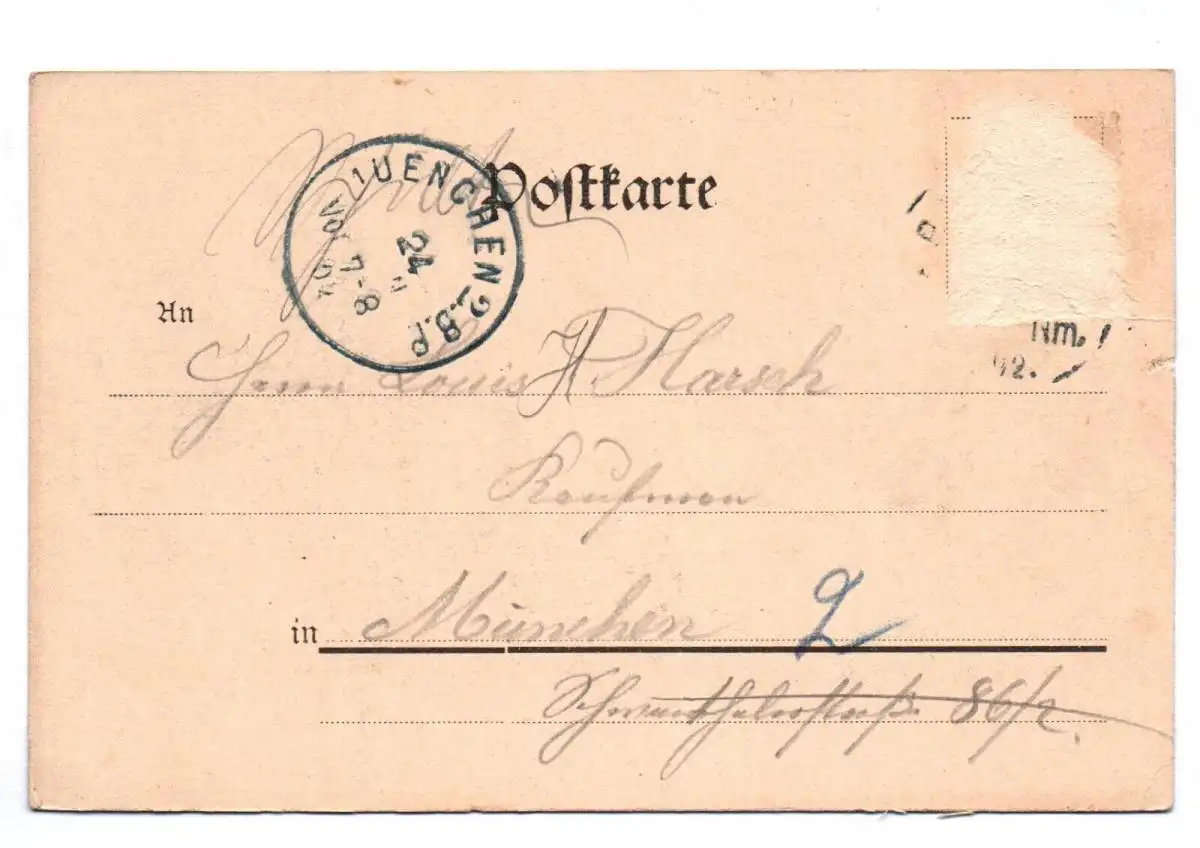 Postkarte
MUENCHEN 2 B.P.
24
7-8
VOR
An
Herrn Louis Harsch
Nm.
02.
Kaufmann
in München 2
Schwanthalerstraß. 86/2.